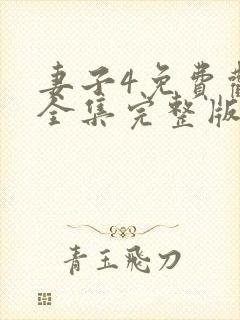 妻子4免費
全集完整版
青玉飛刀